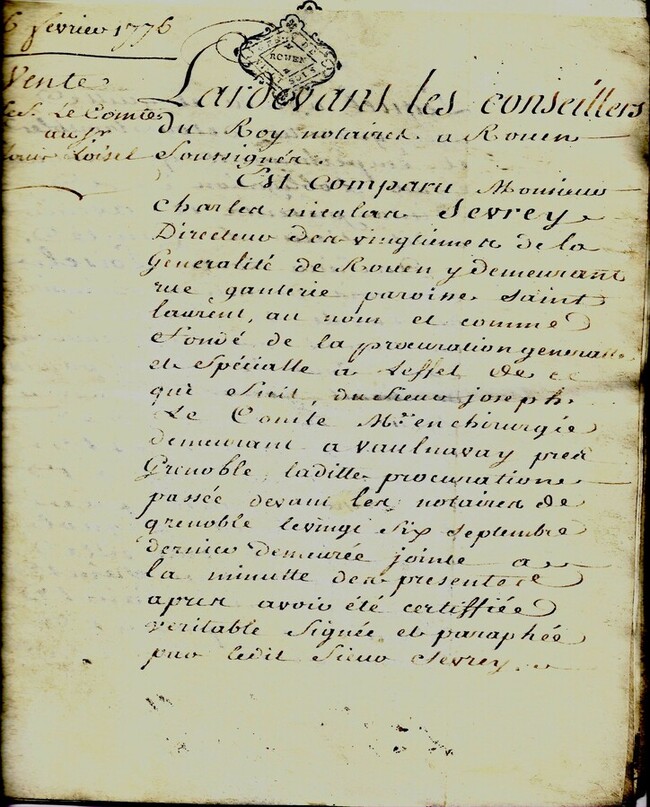 6 fevrier 1776
Vente
Le Comte
au Sr
Louis Loisel
ROUEN
Pardevant les conseillers
du Roy notaires a Rouen
Soussignés.
Est comparu Monsieur
Charles nicolas Sevrey
Directeur des vingtiemes de la
Generalité de Rouen y demeurant
rue ganterie paroisse Saint
laurent, au nom et comme
fondé de la procuration generalle
et Spécialle a Leffet de ce
qui Suit, du Sieur joseph
Le Comte Me en chirurgie
demeurant a Vaulnavay près
Grenoble, laditte procuration
passée devant les notaires de
grenoble le vingt Six Septembre
dernier demeurée jointe a
la minutte des presentes
apres avoir été certiffiée
veritable Signée et paraphée
par ledit Sieur Sevrey.